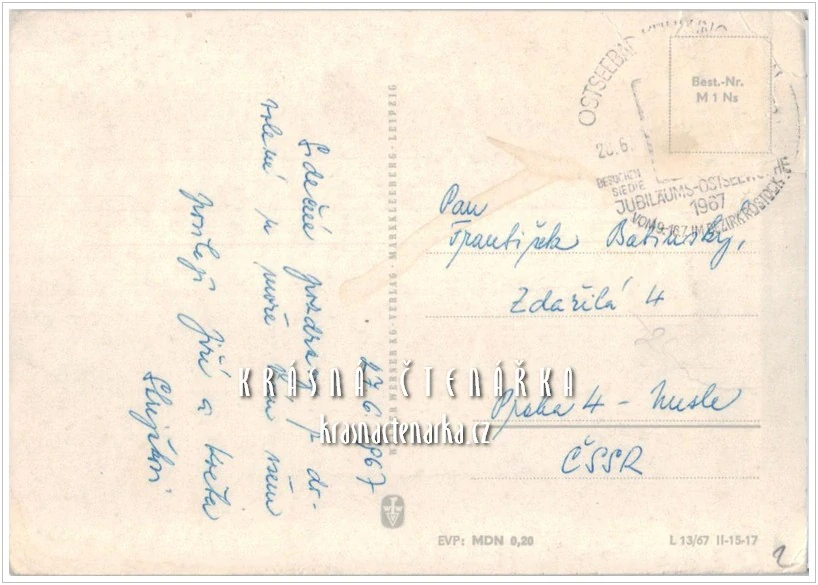 27.6.1967
Srdečné pozdravy z do-
volené u moře Vám všem
posílají Jiří a Květa
WERNER KG · VERLAG · MARKKLEEBERG · LEIPZIG
OSTSEEBAD
28.6.
BESUCHEN
SIE DIE
JUBILÄUMS-OSTSEEWOCHE
1967
VOM 9.-16.7. IM BEZIRK ROSTOCK
Best.-Nr.
M 1 Ns
Pan
František
Zdařilá 4
Praha 4 – Nusle
ČSSR
KRÁSNÁ ČTENÁŘKA
krasnactenarka.cz
EVP: MDN 0,20
L 13/67 II-15-17
2